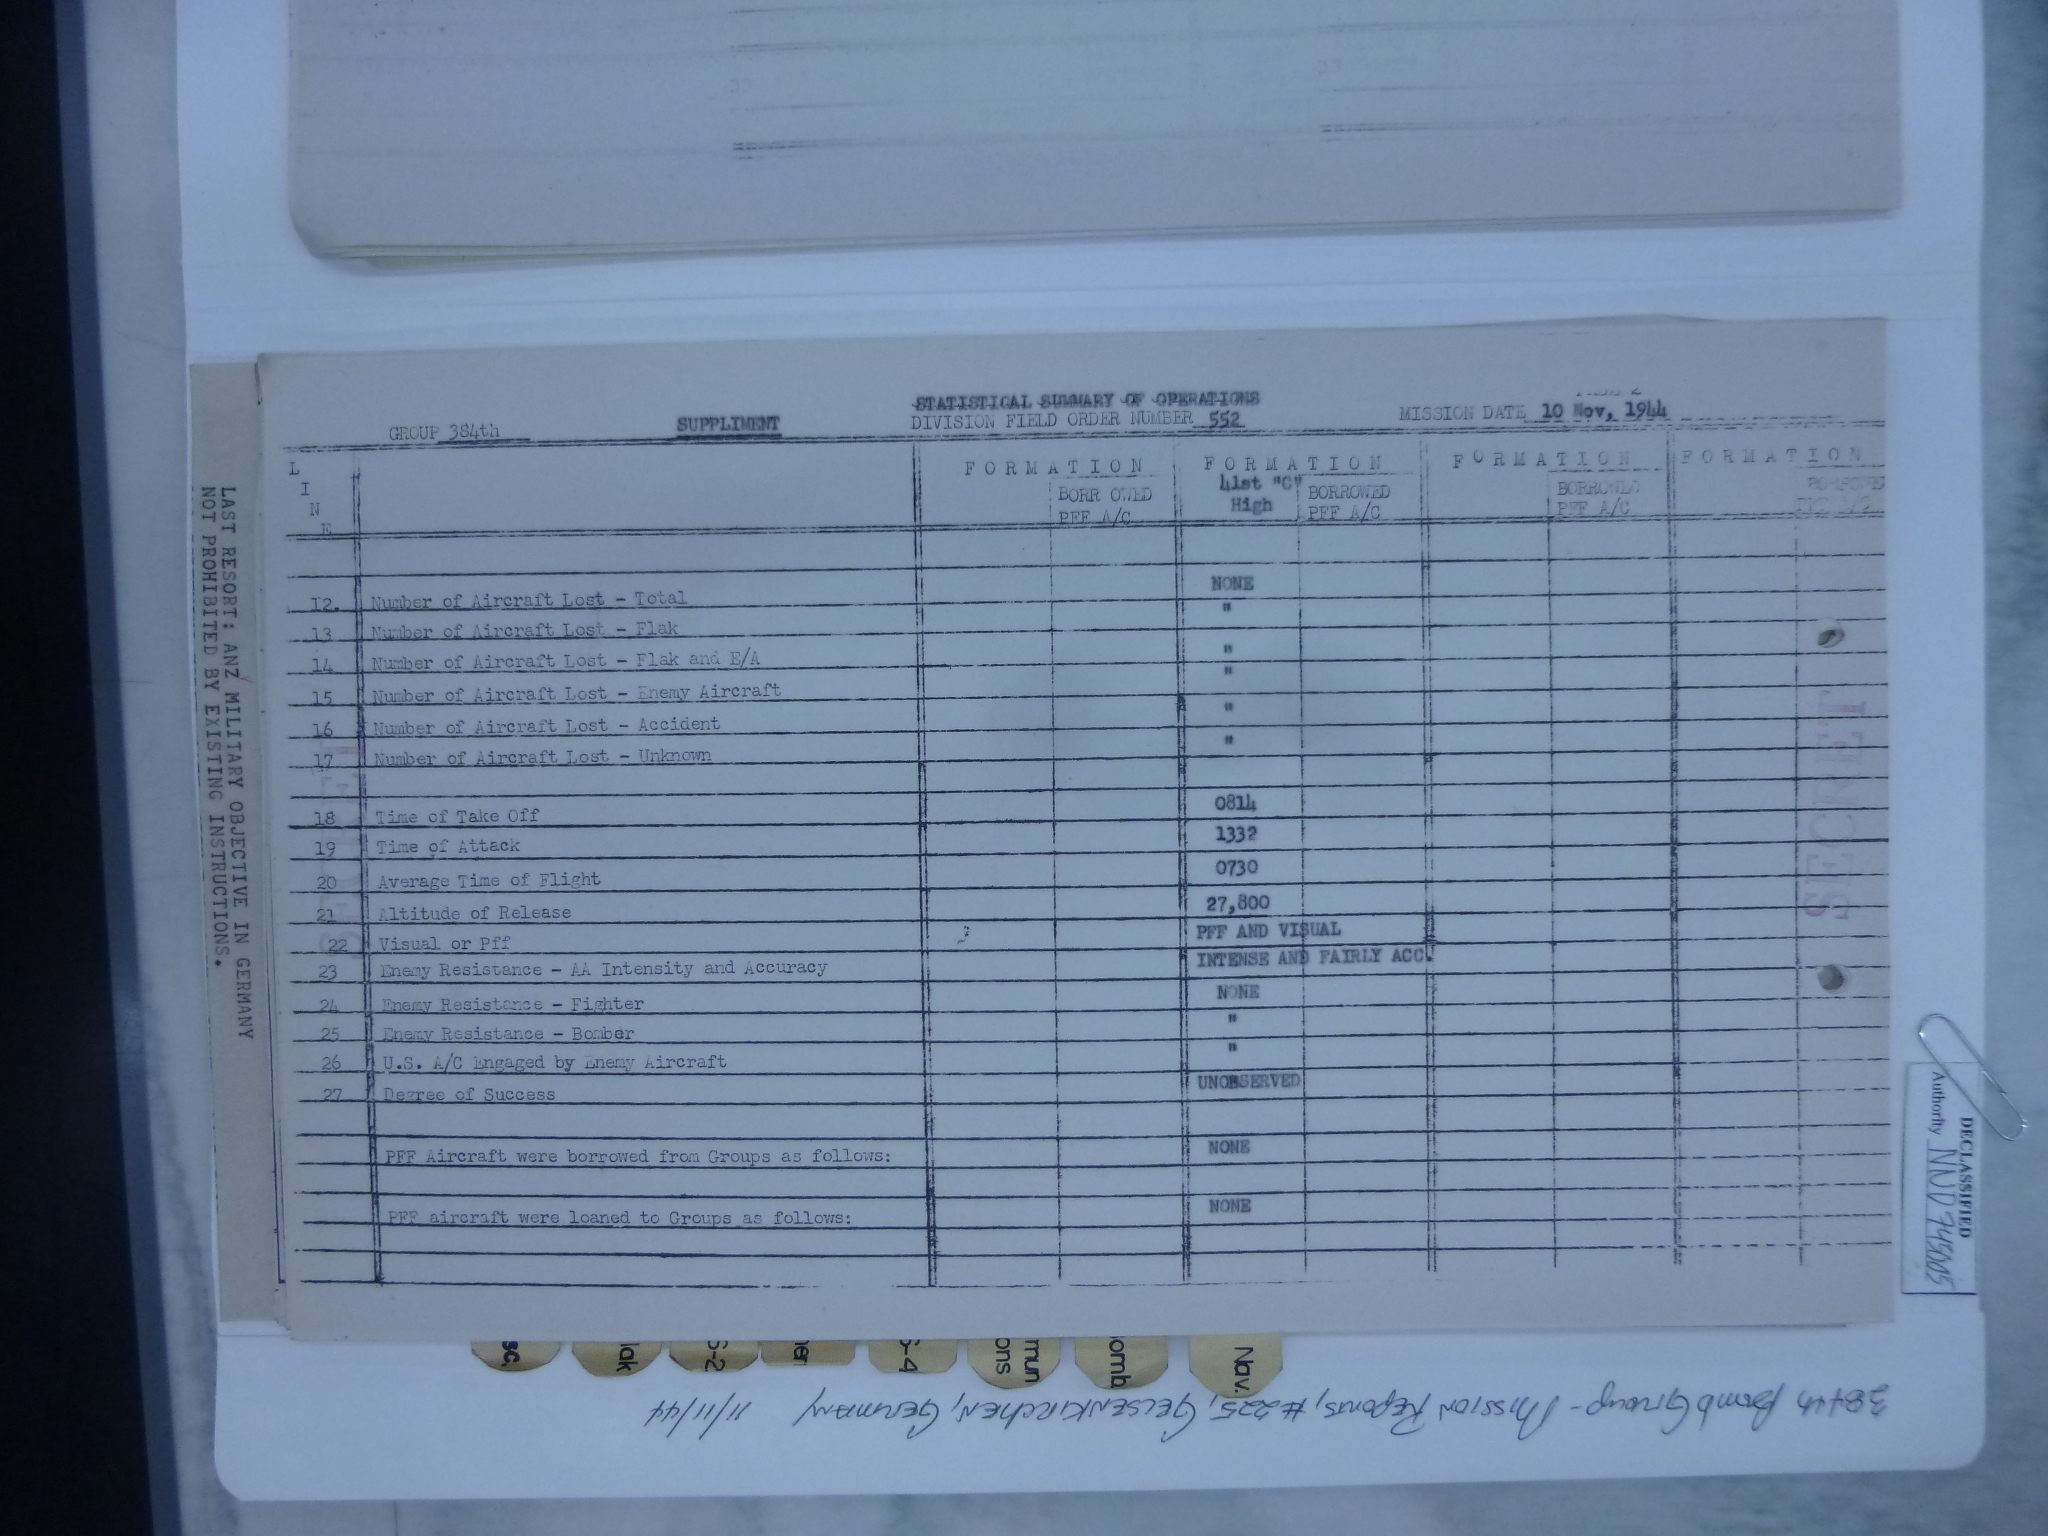 STATISTICAL SUMMARY OF OPERATIONS
GROUP 384th SUPPLIMENT DIVISION FIELD ORDER NUMBER 552 MISSION DATE 10 Nov, 1944
LINE FORMATION FORMATION FORMATION FORMATION
41st "C" High
BORROWED PFF A/C BORROWED PFF A/C BORROWED PFF A/C
12. Number of Aircraft Lost - Total NONE
13 Number of Aircraft Lost - Flak "
14 Number of Aircraft Lost - Flak and E/A "
15 Number of Aircraft Lost - Enemy Aircraft "
16 Number of Aircraft Lost - Accident "
17 Number of Aircraft Lost - Unknown "
18 Time of Take Off 0814
19 Time of Attack 1332
20 Average Time of Flight 0730
21 Altitude of Release 27,800
22 Visual or Pff PFF AND VISUAL
23 Enemy Resistance - AA Intensity and Accuracy INTENSE AND FAIRLY ACC.
24 Enemy Resistance - Fighter NONE
25 Enemy Resistance - Bomber "
26 U.S. A/C Engaged by Enemy Aircraft "
27 Degree of Success UNOBSERVED
PFF Aircraft were borrowed from Groups as follows: NONE
PFF aircraft were loaned to Groups as follows: NONE
LAST RESORT: ANZ MILITARY OBJECTIVE IN GERMANY
NOT PROHIBITED BY EXISTING INSTRUCTIONS.
SECRET
SECRET
DECLASSIFIED
Authority NND 745005
sc.
lak
G-2
her
S-4
mun
ons
omb
Nav.
384th Bomb Group - Mission Reports, #225, Gelsenkirchen, Germany 11/11/44